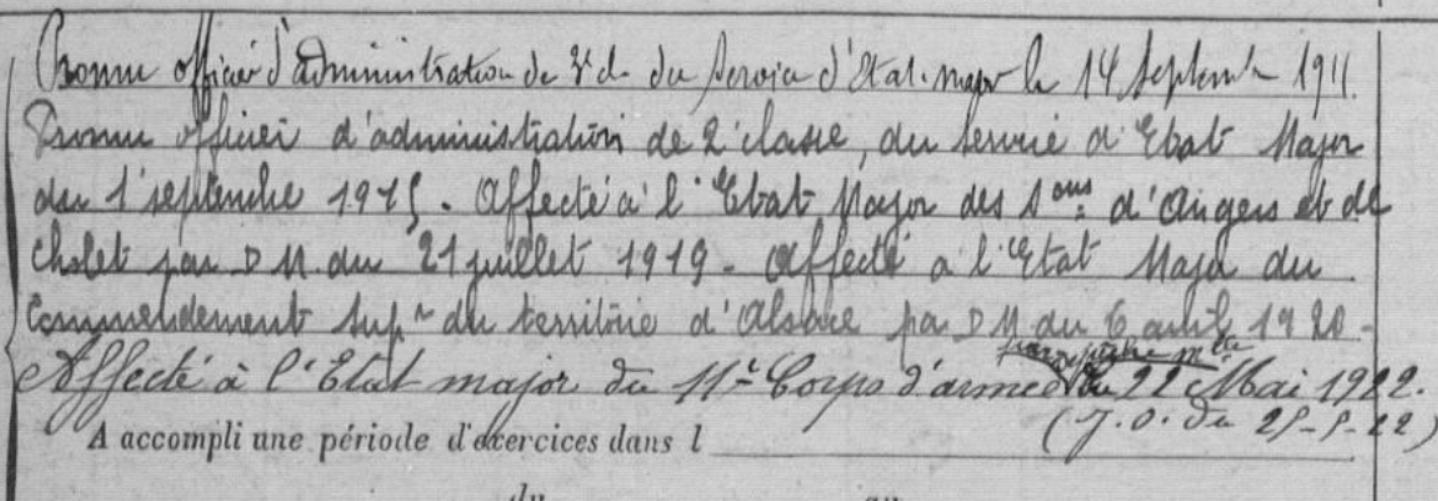 Promu officier d'administration de 3e cl. du Service d'Etat-major le 14 Septembre 1911.
Promu officier d'administration de 2e classe, du service d'Etat Major
du 1er septembre 1915. Affecté à l'Etat Major des sons d'Angers et de
Cholet par D M. du 21 juillet 1919 - Affecté à l'Etat Major du
Commendement Supr du territoire d'Alsace par D M du 6 avril 1920 -
Affecté à l'Etat major du 11e Corps d'armée du 22 Mai 1922.
(J.O. du 25-5-22)
A accompli une période d'exercices dans l
du au